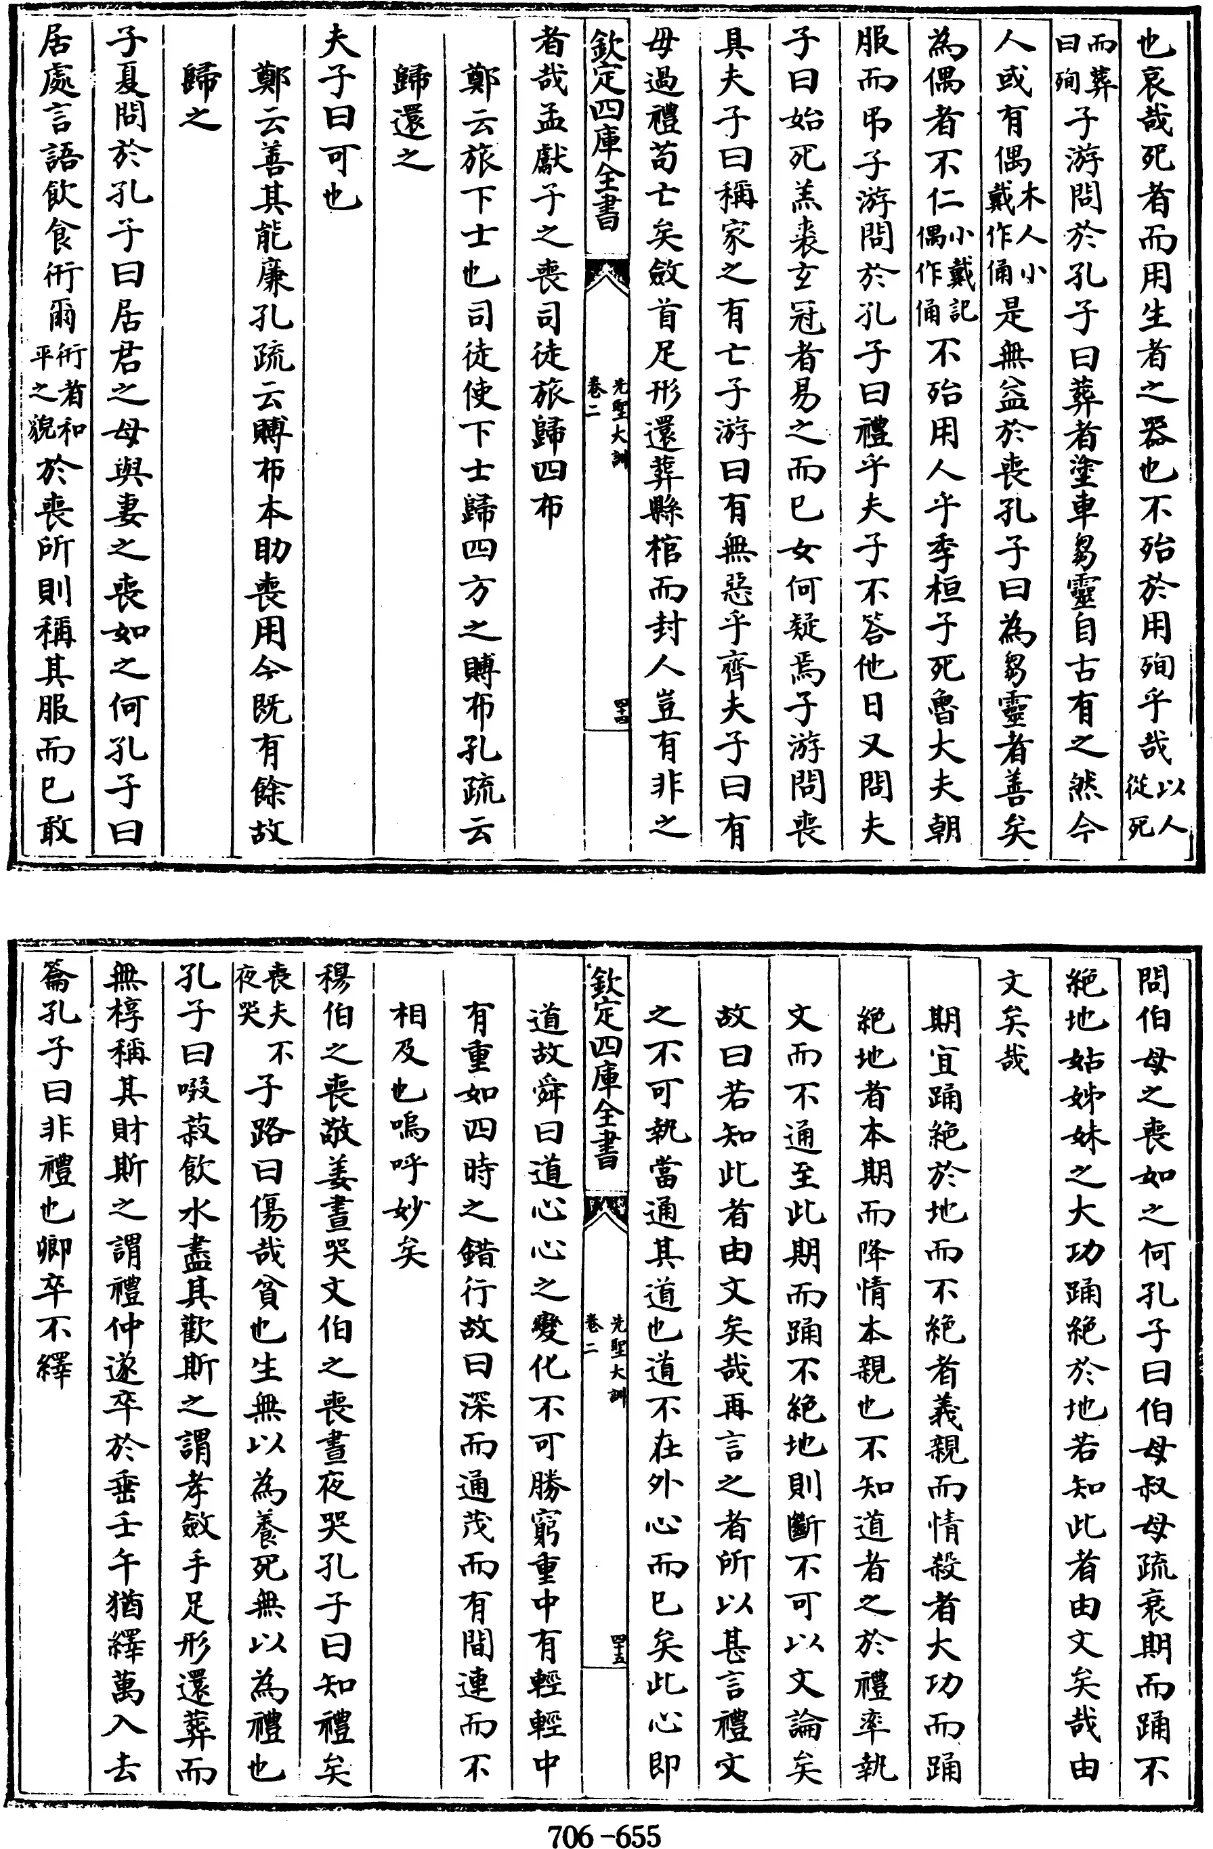 也哀哉死者而用生者之器也不殆於用殉乎哉以人從死
而葬曰殉子游問於孔子曰葬者塗車芻靈自古有之然今
人或有偶木人小戴作俑是無益於喪孔子曰為芻靈者善矣
為偶者不仁小戴記偶作俑不殆用人乎季桓子死魯大夫朝
服而弔子游問於孔子曰禮乎夫子不答他日又問夫
子曰始死羔裘玄冠者易之而已女何疑焉子游問喪
具夫子曰稱家之有亡子游曰有無惡乎齊夫子曰有
毋過禮苟亡矣斂首足形還葬縣棺而封人豈有非之
欽定四庫全書 先聖大訓 卷二 四十四
者哉孟獻子之喪司徒旅歸四布
鄭云旅下士也司徒使下士歸四方之賻布孔疏云
歸還之
夫子曰可也
鄭云善其能廉孔疏云賻布本助喪用今既有餘故
歸之
子夏問於孔子曰居君之母與妻之喪如之何孔子曰
居處言語飲食衎爾衎者和平之貌於喪所則稱其服而已敢
問伯母之喪如之何孔子曰伯母叔母疏衰期而踊不
絶地姑姊妹之大功踊絶於地若知此者由文矣哉由
文矣哉
期宜踊絶於地而不絶者義親而情殺者大功而踊
絶地者本期而降情本親也不知道者之於禮率執
文而不通至此期而踊不絶地則斷不可以文論矣
故曰若知此者由文矣哉再言之者所以甚言禮文
之不可執當通其道也道不在外心而已矣此心即
欽定四庫全書 先聖大訓 卷二 四十五
道故舜曰道心心之變化不可勝窮重中有輕輕中
有重如四時之錯行故曰深而通茂而有間連而不
相及也嗚呼妙矣
穆伯之喪敬姜晝哭文伯之喪晝夜哭孔子曰知禮矣
喪夫不夜哭子路曰傷哉貧也生無以為養死無以為禮也
孔子曰啜菽飲水盡其歡斯之謂孝斂手足形還葬而
無椁稱其財斯之謂禮仲遂卒於垂壬午猶繹萬入去
籥孔子曰非禮也卿卒不繹
706-655